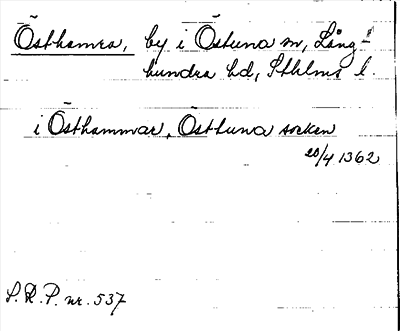 Östhamra, by i Östuna sn, Lång-
hundra hd, Sthlms l.
i Östhammar, Östhuna socken
20/4 1362
S.R.P. nr. 537